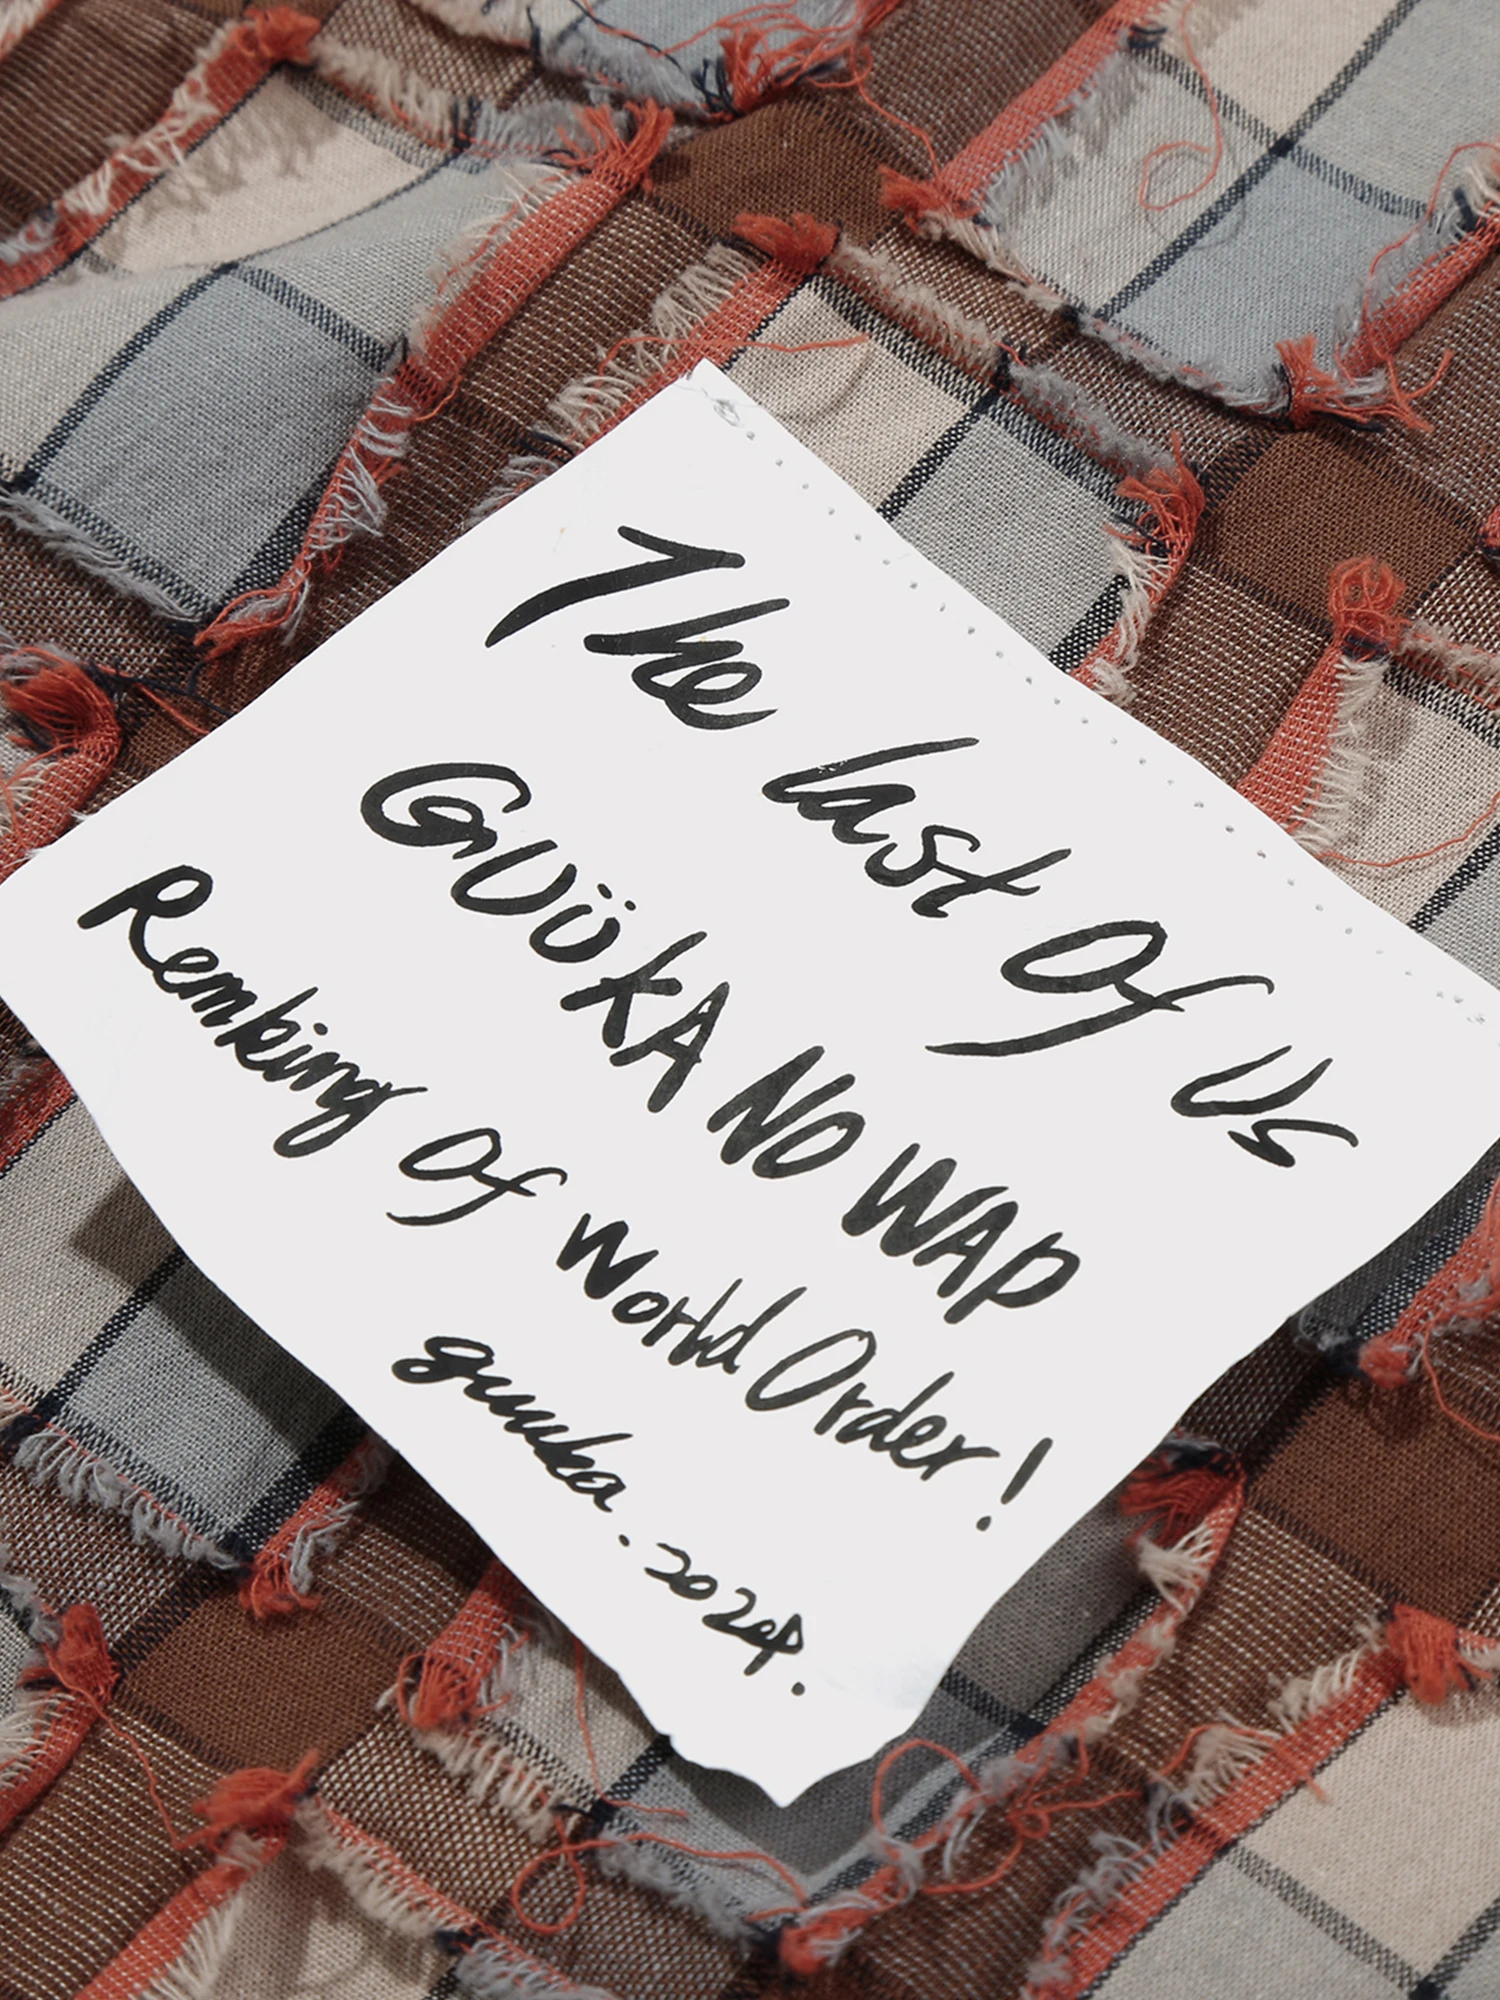 The last Of Us
GUüKA NO WAP
Remking Of World Order!
guuka. 2024.